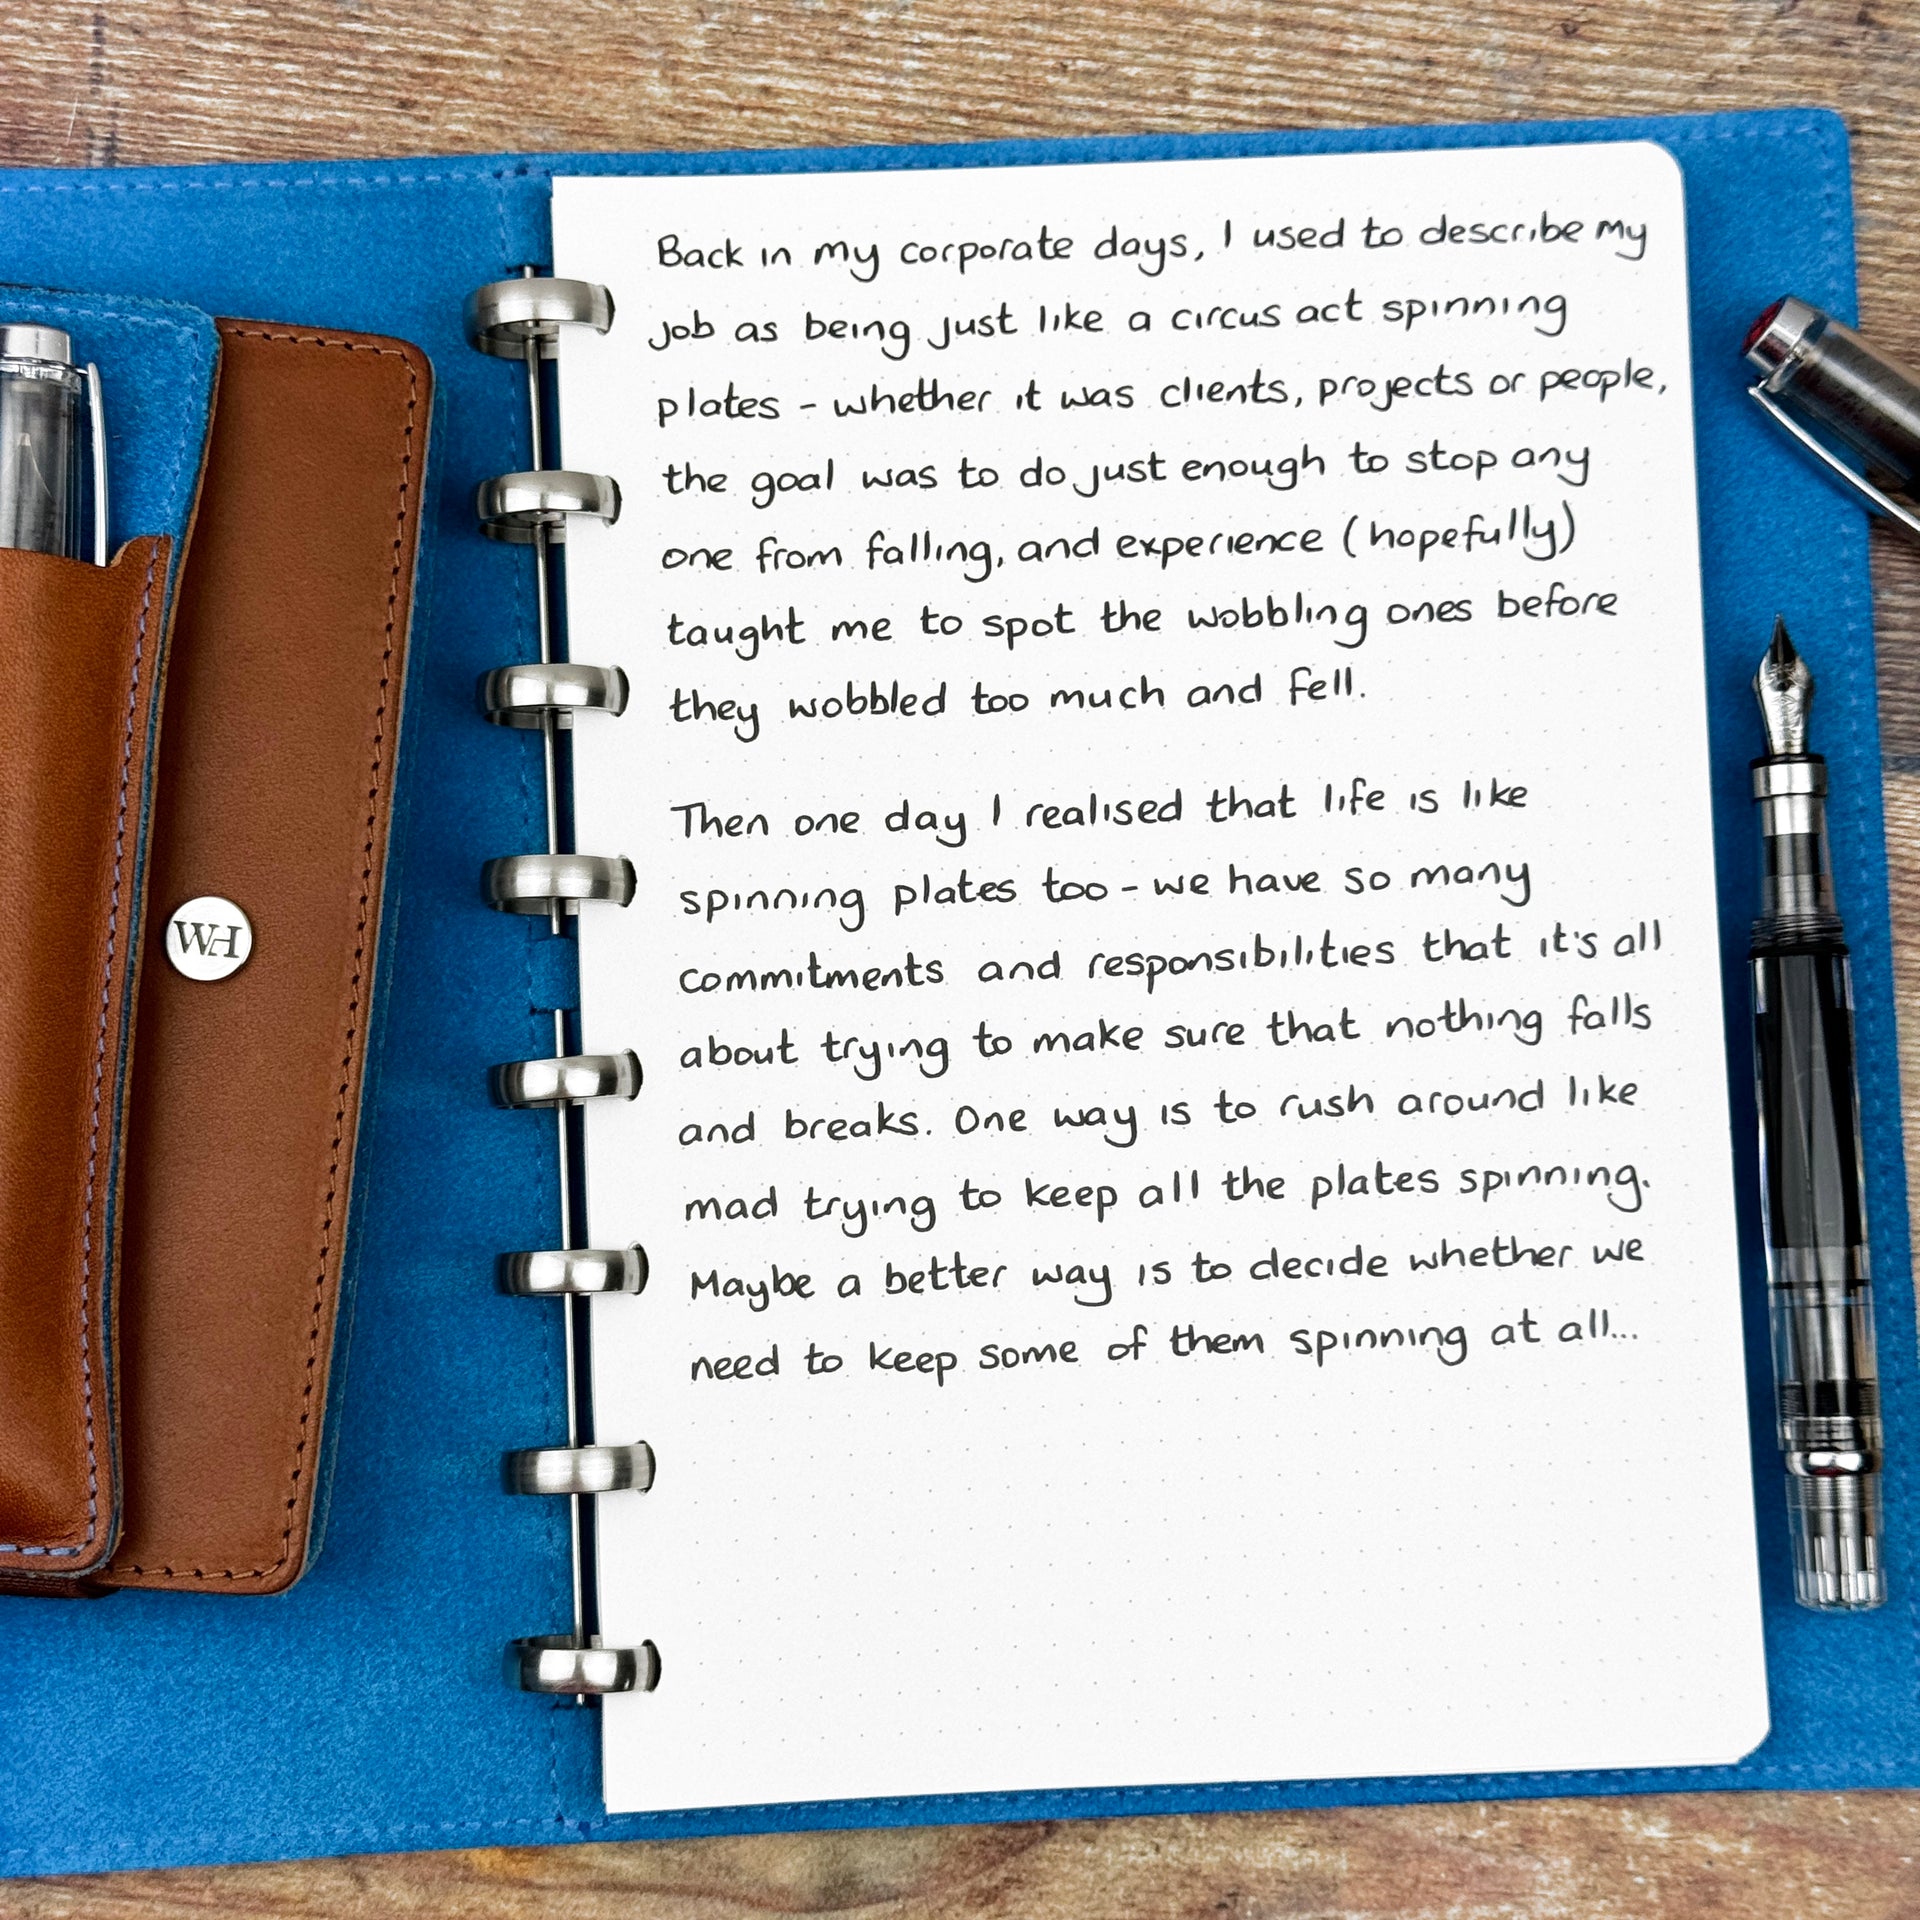 Back in my corporate days, I used to describe my
job as being just like a circus act spinning
plates - whether it was clients, projects or people,
the goal was to do just enough to stop any
one from falling, and experience (hopefully)
taught me to spot the wobbling ones before
they wobbled too much and fell.
Then one day I realised that life is like
spinning plates too - we have so many
commitments and responsibilities that it's all
about trying to make sure that nothing falls
and breaks. One way is to rush around like
mad trying to keep all the plates spinning.
Maybe a better way is to decide whether we
need to keep some of them spinning at all...
WH